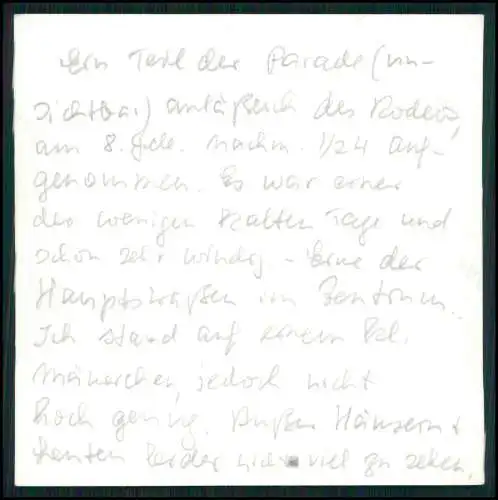 Ein Teil der Parade (un-
sichtbar) anläßlich des Rodeos,
am 8. Feb. nachm. 1/2 4 auf-
genommen. Es war einer
der wenigen kalten Tage und
schon sehr windig - Eine der
Hauptstraßen im Zentrum.
Ich stand auf einem
Mäuerchen, jedoch nicht
hoch genug. Außer Häusern +
Leuten leider nicht viel zu sehen.